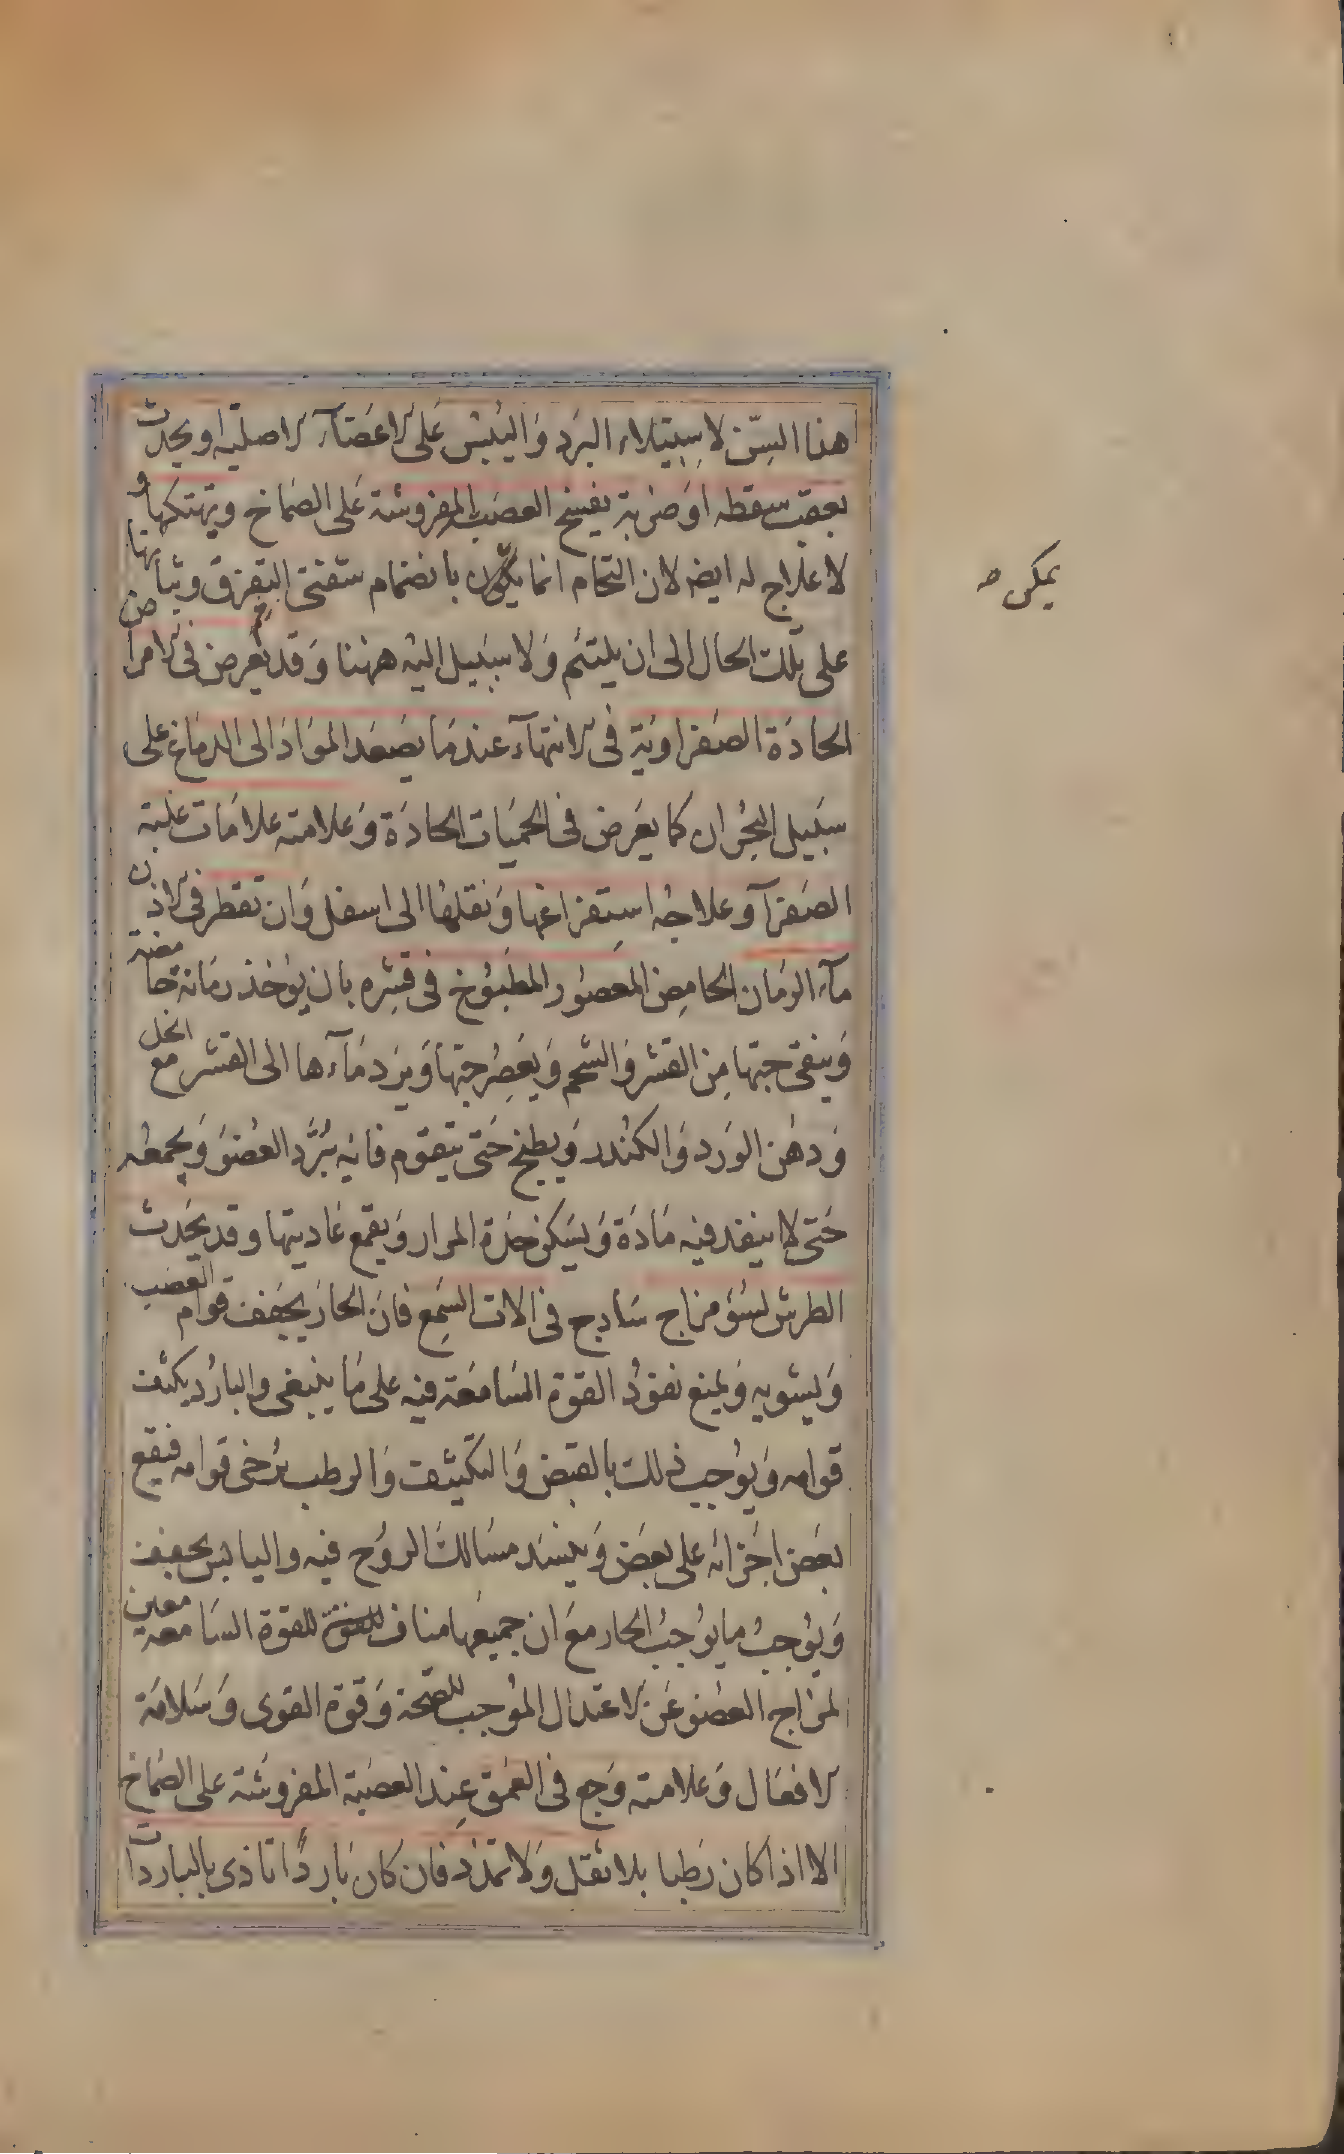 هذا السن لاستيلاء البرد واليبس على الاعضآء الاصليه او يحدث
بعقب سقطه او ضربة يفسخ العصب المفروشة على الصماخ ويهتكها و
لا علاج له ايضه لان التحام انما يكون بانضمام شفتى التفرق وثباتهنا
يمكن صـ
على تلك الحال الى ان يلتئم ولا سبيل اليه ههنا وقد يعرض فى الامراض
الحادة الصفراوية فى الانتهآء عندما يصعد المواد الى الدماغ على
سبيل البحران كما يعرض فى الحميات الحادة وعلامته علامات غلبة
الصفرآ وعلاجه استفراغها ونقلها الى اسفل وان تقطر فى الاذن
مآء الرمان الحامض المعصور المطبوخ فى قشره بان يؤخذ رمانة حامضة
وينقى حبها من القشر والشحم ويعصر حبها ويرد مآءها الى القشر مع الخل
ودهن الورد والكندر ويطبخ حتى يتقوم فانه يبرد العضو ويجمعه
حتى لا ينفد فيه مادة ويسكن حدة المرار ويقمع غاديتها وقد يحدث
الطرش لسؤ مزاج سادج فى الات السمع فان الحار يجفف قوام العصب
ويشويه ويمنع نفوذ القوة السامعة فيه على ما ينبغى والبارد يكثف
قوامه ويوجب ذلك بالقبض والتكثيف والرطب يرخى قوامه فيقع
بعض اجزائه على بعض وينسد مسالك الروح فيه واليابس يجفف
ويوجب ما يوجب الحار مع ان جميعها مناف للقوة السامعه مغير
لمزاج العضو عن الاعتدال الموجب للصحة وقوة القوى وسلامة
الافعال وعلامته وجع فى العمق عند العصبة المفروشة على الصماخ
الا اذا كان رطبا بلا ثقل ولا تمدد فان كان باردا تاذى بالباردات